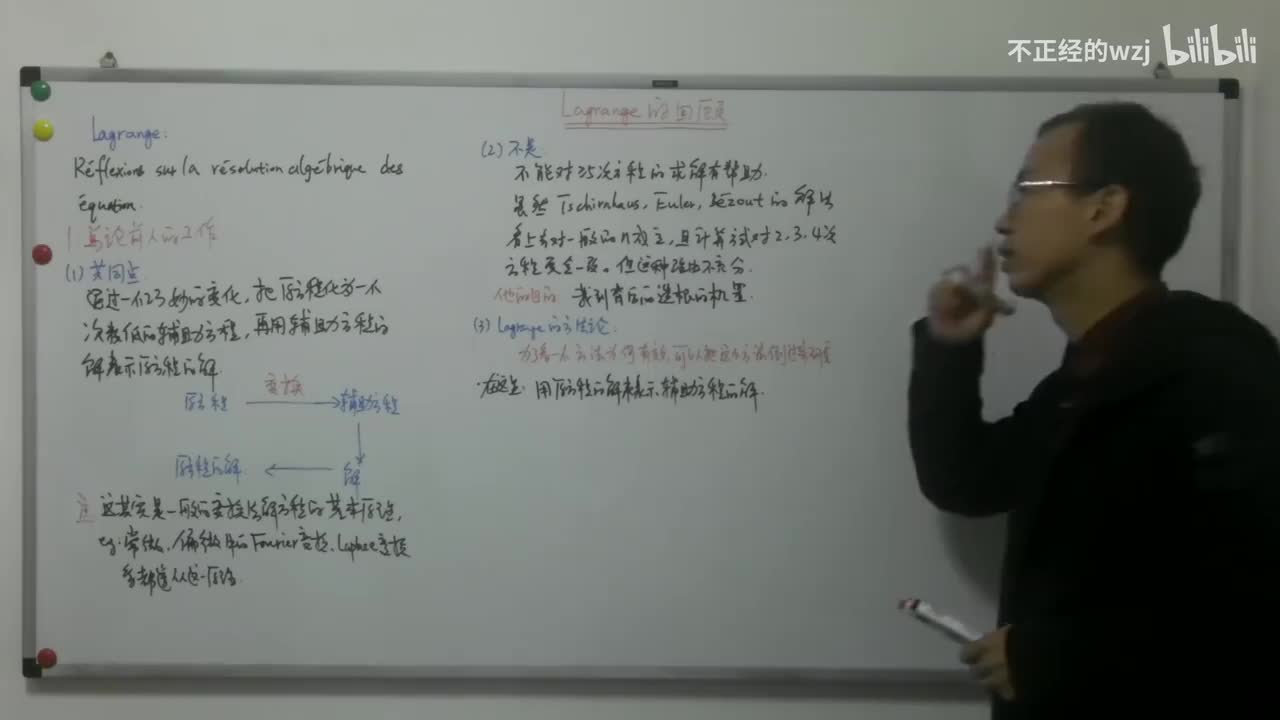 不正经的wzj bilibili
Lagrange 的回顾
Lagrange:
Réflexions sur la résolution algébrique des
équation.
1 总论前人的工作
(1) 共同点
通过一个巧妙的变化，把原方程化为一个
次数低的辅助方程，再用辅助方程的
解表示原方程的解.
变换
原方程 辅助方程
原方程的解 解
注 这其实是一般的变换法解方程的基本原理,
eg. 常微、偏微中的Fourier变换、Laplace变换
都遵从这一原理.
(2) 不足
不能对≥5次方程的求解有帮助.
虽然 Tschirnhaus, Euler, Bézout 的解法
看上去对一般的n成立, 且计算式对2,3,4次
方程完全一致。但这种理由不充分.
他的目的 找到背后的逻辑的机里.
(3) Lagrange 的方法论:
为了看一个方法为何有效, 可以把这个方法倒过来研究
·在这是: 用原方程的解来表示辅助方程的解.